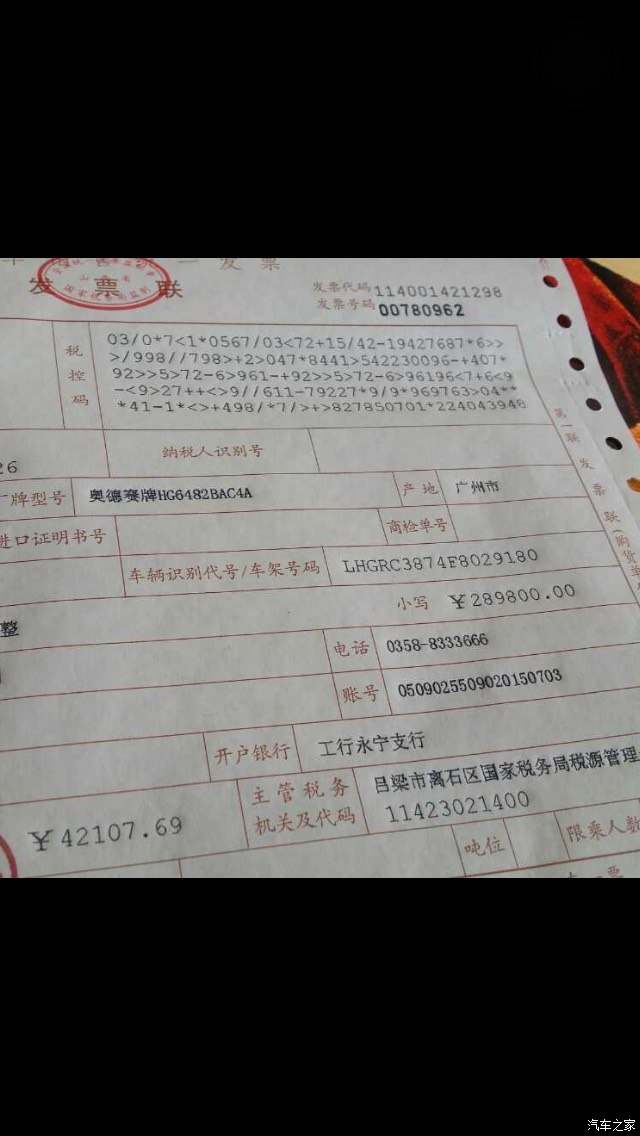 发票
发票联
发票代码 114001421298
发票号码 00780962
税控码
03/0*7<1*0567/03<72+15/42-19427687*6>>
>/998//798>+2>047*8441>542230096-+407*
92>>5>72-6>961-+92>>5>72-6>96196<7+6<9
-<9>27++<>9//611-79227*9/9*969763>04**
*41-1*<>+498/*7/>+>827850701*224043948
第一联 发票联(购货单
26
纳税人识别号
牌型号 奥德赛牌HG6482BAC4A 产地 广州市
进口证明书号 商检单号
车辆识别代号/车架号码 LHGRC3874F8029180
整 小写 ￥289800.00
电话 0358-8333666
账号 0509025509020150703
开户银行 工行永宁支行
￥42107.69
主管税务机关及代码 吕梁市离石区国家税务局税源管理
11423021400
吨位 限乘人数
汽车之家